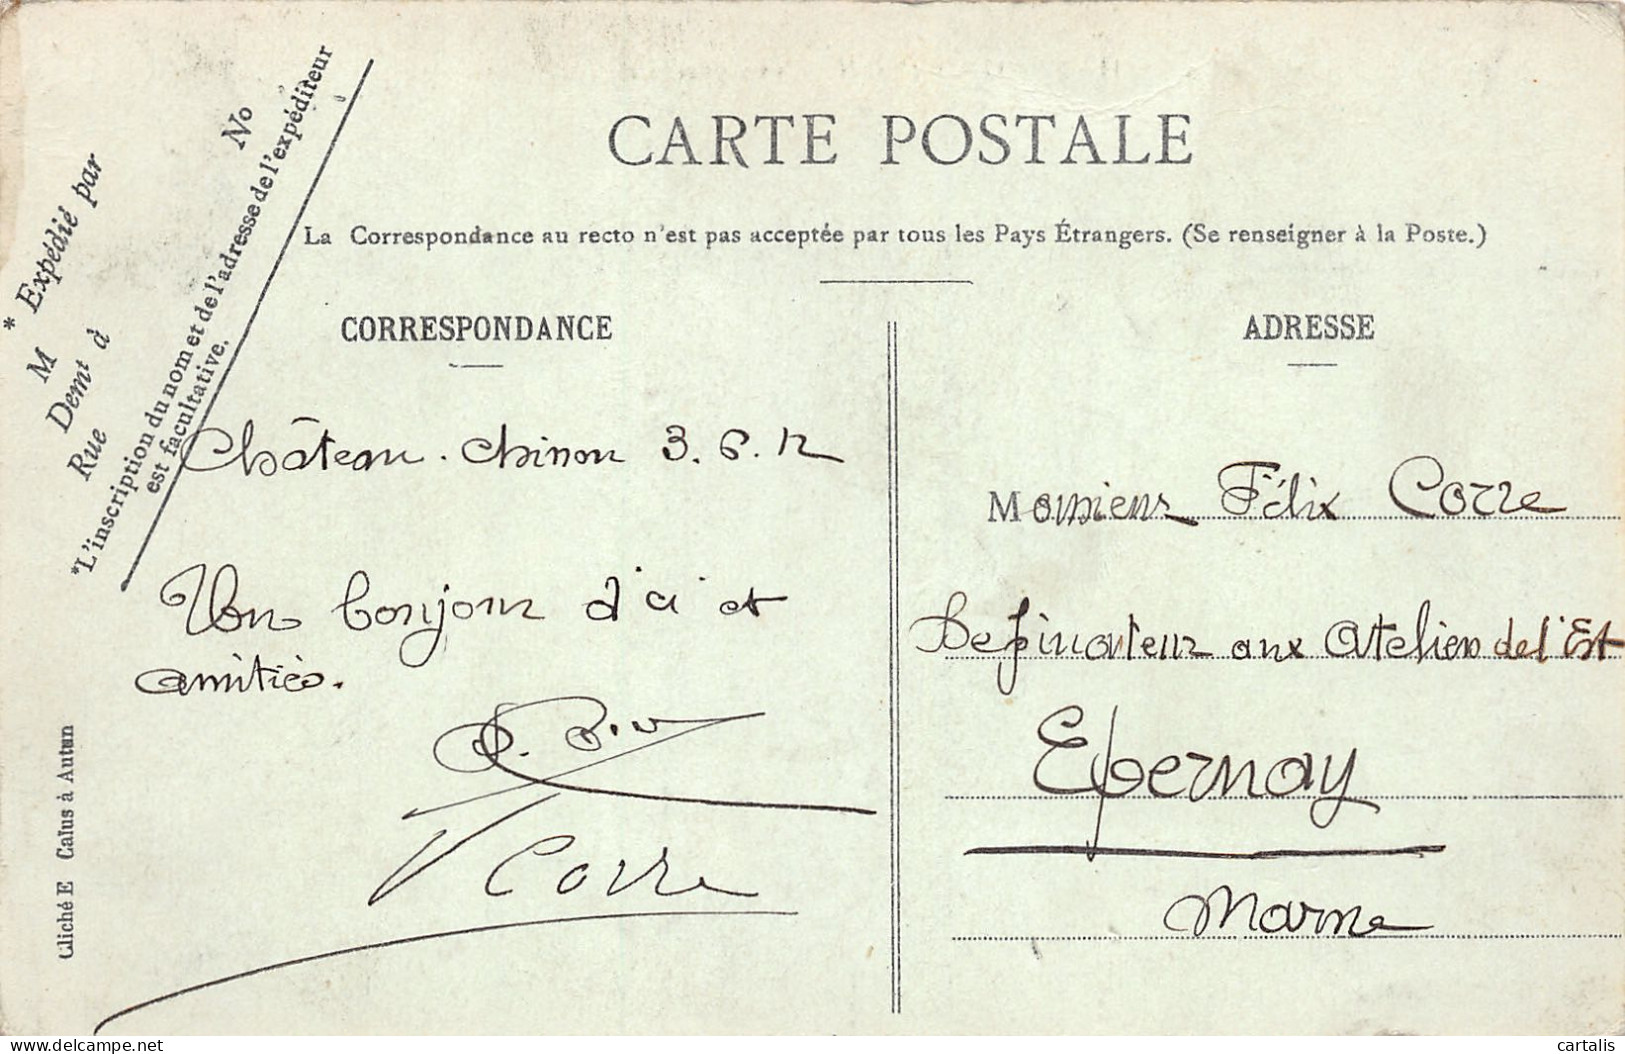 CARTE POSTALE
La Correspondance au recto n'est pas acceptée par tous les Pays Étrangers. (Se renseigner à la Poste.)
* Expédié par
M
Demt à
Rue
No
*L'inscription du nom et de l'adresse de l'expéditeur
est facultative.
CORRESPONDANCE
Château-Chinon 3.6.12
Un bonjour d'ici et
amitiés.
Corre
Cliché E Calus à Autun
ADRESSE
Monsieur Félix Corre
aux Ateliers de l'Est
Epernay
Marne
delcampe.net
cartalis